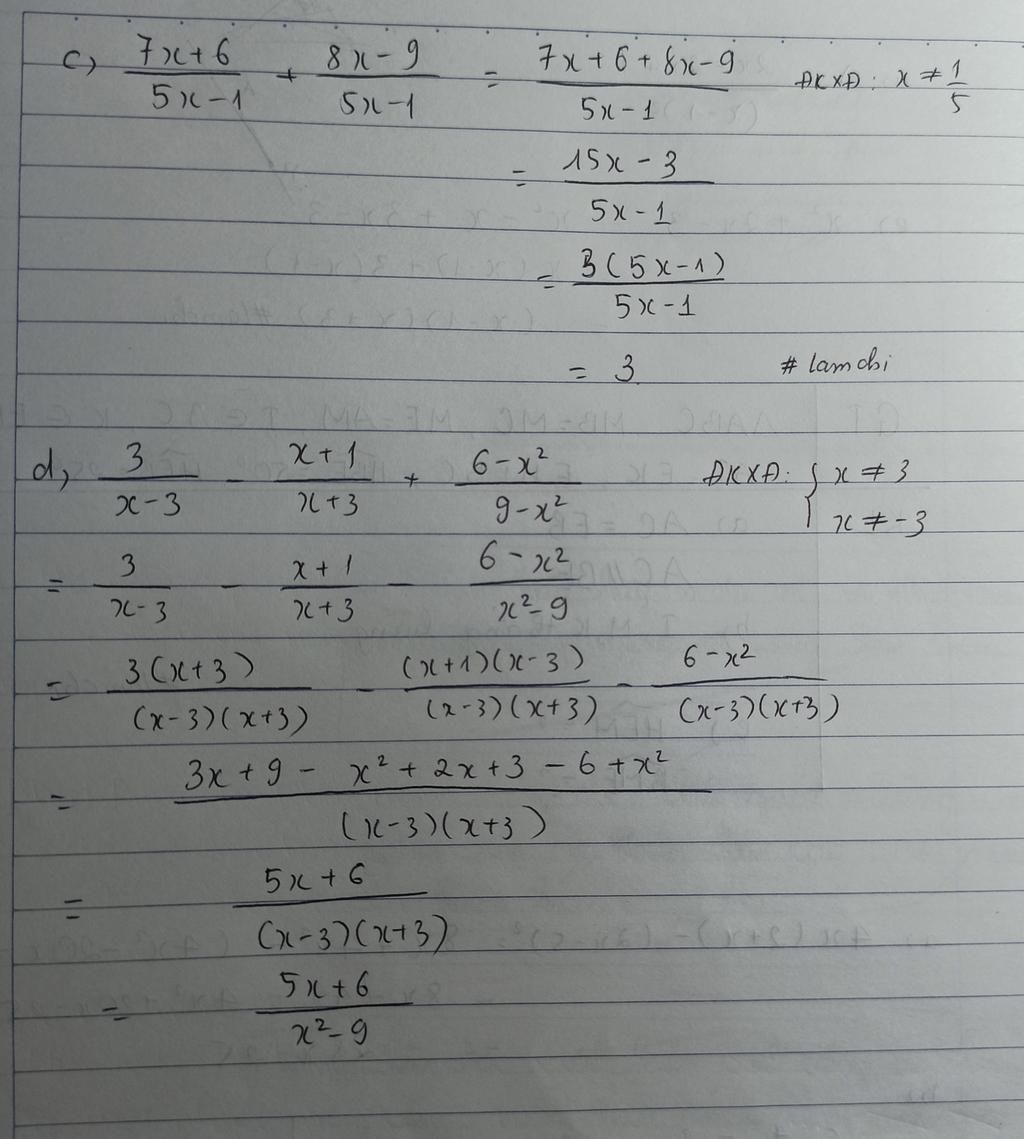 c, (7x+6)/(5x-1) + (8x-9)/(5x-1) = (7x+6+8x-9)/(5x-1) ĐKXĐ: x ≠ 1/5
= (15x-3)/(5x-1)
= 3(5x-1)/(5x-1)
= 3 # lamchi
d, 3/(x-3) - (x+1)/(x+3) + (6-x²)/(9-x²) ĐKXĐ: { x ≠ 3
x ≠ -3
= 3/(x-3) - (x+1)/(x+3) - (6-x²)/(x²-9)
= 3(x+3)/((x-3)(x+3)) - (x+1)(x-3)/((x-3)(x+3)) - (6-x²)/((x-3)(x+3))
= (3x+9 - x²+2x+3-6+x²)/((x-3)(x+3))
= (5x+6)/((x-3)(x+3))
= (5x+6)/(x²-9)